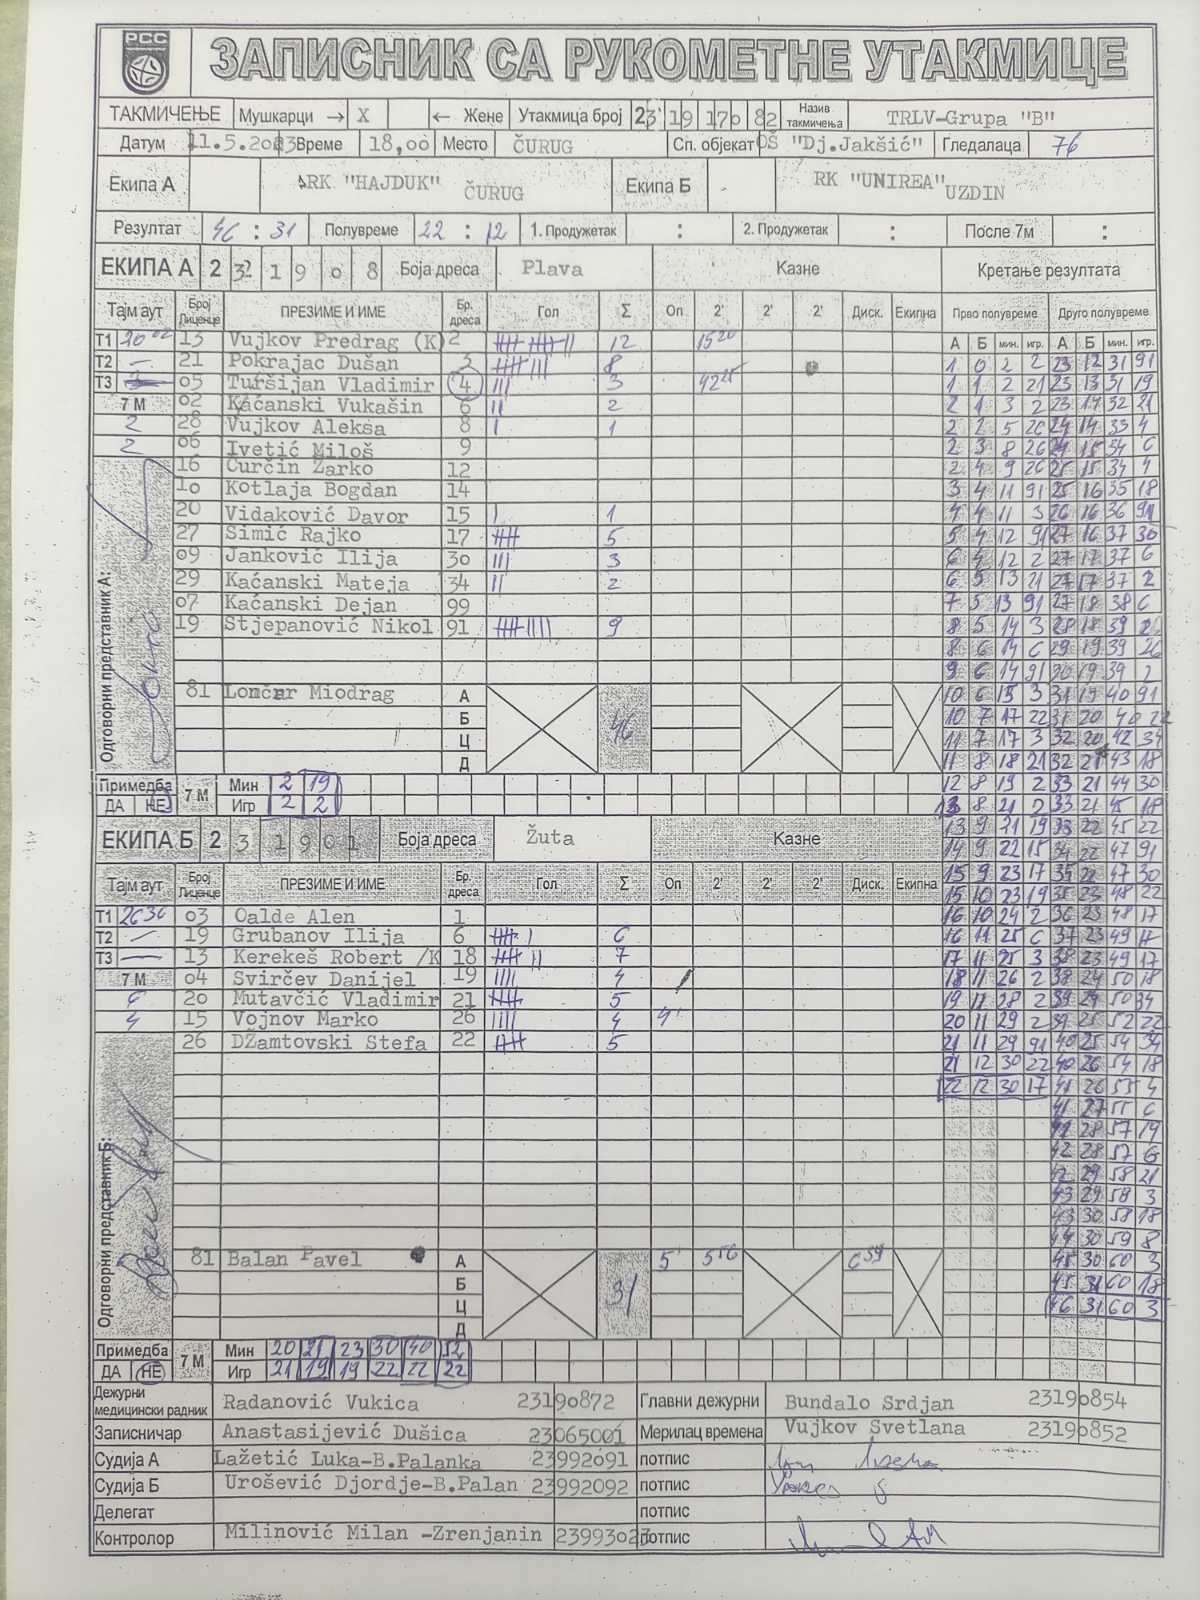 РСС
ЗАПИСНИК СА РУКОМЕТНЕ УТАКМИЦЕ
ТАКМИЧЕЊЕ Мушкарци → X ← Жене Утакмица број 23 19 170 82 Назив такмичења TRLV-Grupa "B"
Датум 11.5.2023 Време 18,00 Место ČURUG Сп. објекат OŠ "Dj.Jakšić" Гледалаца 76
Екипа А RK "HAJDUK" ČURUG Екипа Б RK "UNIREA" UZDIN
Резултат 46 : 31 Полувреме 22 : 12 1. Продужетак : 2. Продужетак : После 7м :
ЕКИПА А 2 3 1 9 0 8 Боја дреса Plava Казне Кретање резултата
Тајм аут Број Лиценце ПРЕЗИМЕ И ИМЕ Бр. дреса Гол Σ Оп 2' 2' 2' Диск. Екипна Прво полувреме Друго полувреме
А Б мин. игр. А Б мин. игр.
T1 20 02 13 Vujkov Predrag (K) 2 12 15 20 1 0 2 2 23 12 31 91
T2 – 21 Pokrajac Dušan 3 8 1 1 2 21 23 13 31 19
T3 05 Turšijan Vladimir 4 3 42 25 2 1 3 2 23 14 32 21
7 М 02 Kaćanski Vukašin 6 2 2 2 5 26 24 14 33 4
2 28 Vujkov Aleksa 8 1 2 3 8 26 24 15 34 6
2 06 Ivetić Miloš 9 2 4 9 26 25 15 34 4
16 Ćurčin Žarko 12 3 4 11 91 25 16 35 18
10 Kotlaja Bogdan 14 4 4 11 3 26 16 36 91
20 Vidaković Davor 15 1 5 4 12 91 27 16 37 30
27 Simić Rajko 17 5 6 4 12 2 27 17 37 6
09 Janković Ilija 30 3 6 5 13 21 27 17 37 2
29 Kaćanski Mateja 34 2 7 5 13 91 27 18 38 6
07 Kaćanski Dejan 99 8 5 14 3 28 18 39 2
19 Stjepanović Nikol 91 9 8 6 14 6 29 19 39 26
9 6 14 91 30 19 39 2
Одговорни представник А:
81 Lončar Miodrag А 46 10 6 15 3 31 19 40 91
Б 10 7 17 22 31 20 40 22
Ц 11 7 17 3 32 20 42 34
Д 11 8 18 21 32 21 43 18
Примедба ДА НЕ 7 М Мин 2 19 12 8 19 2 33 21 44 30
Игр 2 2 13 8 21 2 33 21 45 18
ЕКИПА Б 2 3 1 9 0 1 Боја дреса Žuta Казне 13 9 21 19 33 22 45 22
14 9 22 15 34 22 47 91
Тајм аут Број Лиценце ПРЕЗИМЕ И ИМЕ Бр. дреса Гол Σ Оп 2' 2' 2' Диск. Екипна 15 9 23 17 35 22 47 30
15 10 23 19 35 23 48 22
T1 26 36 03 Oalde Alen 1 16 10 24 2 36 23 48 17
T2 – 19 Grubanov Ilija 6 6 16 11 25 6 37 23 49 17
T3 – 13 Kerekeš Robert /K 18 7 17 11 25 3 38 23 49 17
7 М 04 Svirčev Danijel 19 4 18 11 26 2 38 24 50 18
6 20 Mutavčić Vladimir 21 5 19 11 28 2 39 24 50 34
4 15 Vojnov Marko 26 4 20 11 29 2 39 25 52 22
26 DŽamtovski Stefa 22 5 21 11 29 91 40 25 54 34
21 12 30 22 40 26 54 18
22 12 30 17 41 26 55 4
41 27 55 6
41 28 57 19
42 28 57 6
42 29 58 21
43 29 58 3
43 30 58 18
44 30 59 8
Одговорни представник Б:
81 Balan Pavel А 31 5' 5 56 6 59 45 30 60 3
Б 45 31 60 18
Ц 46 31 60 3
Д
Примедба ДА НЕ 7 М Мин 20 21 23 30 40 52
Игр 21 19 19 22 22 22
Дежурни медицински радник Radanović Vukica 23190872 Главни дежурни Bundalo Srdjan 23190854
Записничар Anastasijević Dušica 23065001 Мерилац времена Vujkov Svetlana 23190852
Судија А Lažetić Luka-B.Palanka 23992091 потпис
Судија Б Urošević Djordje-B.Palan 23992092 потпис
Делегат потпис
Контролор Milinović Milan -Zrenjanin 23993023 потпис